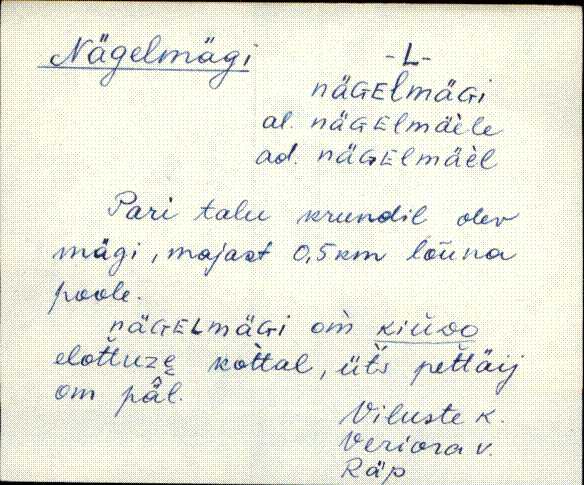 Nägelmägi -L-
näGELmäGi
al. näGELmäìle
ad. näGELmäìl
Pari talu krundil olev
mägi, majast 0,5 km lõuna
poole.
näGELmäGi om̀ kiùoo
elot̀tuzę kot̀tal, üt̀s pet̀täij
om pä̂l.
Viluste k.
Veriora v.
Räp